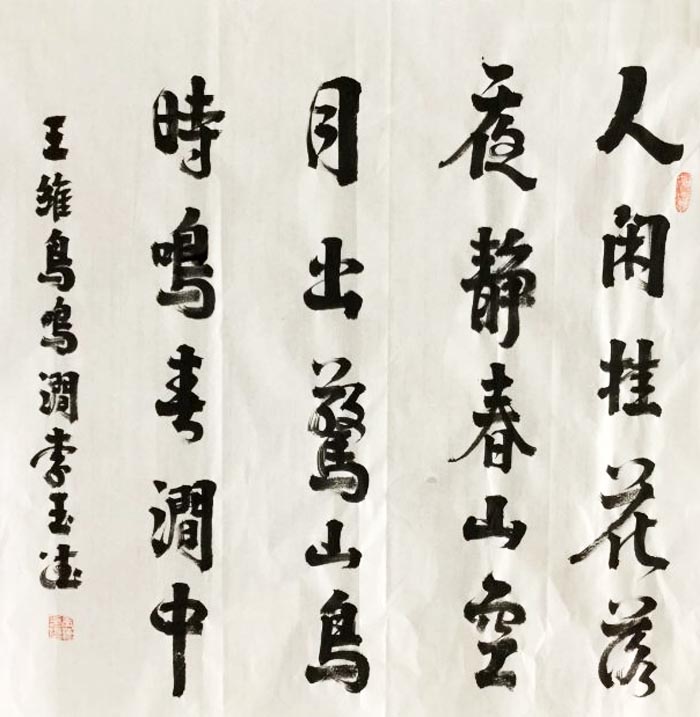 人闲桂花落
夜靜春山空
月出驚山鳥
時鳴春澗中
王維鳥鳴澗李玉